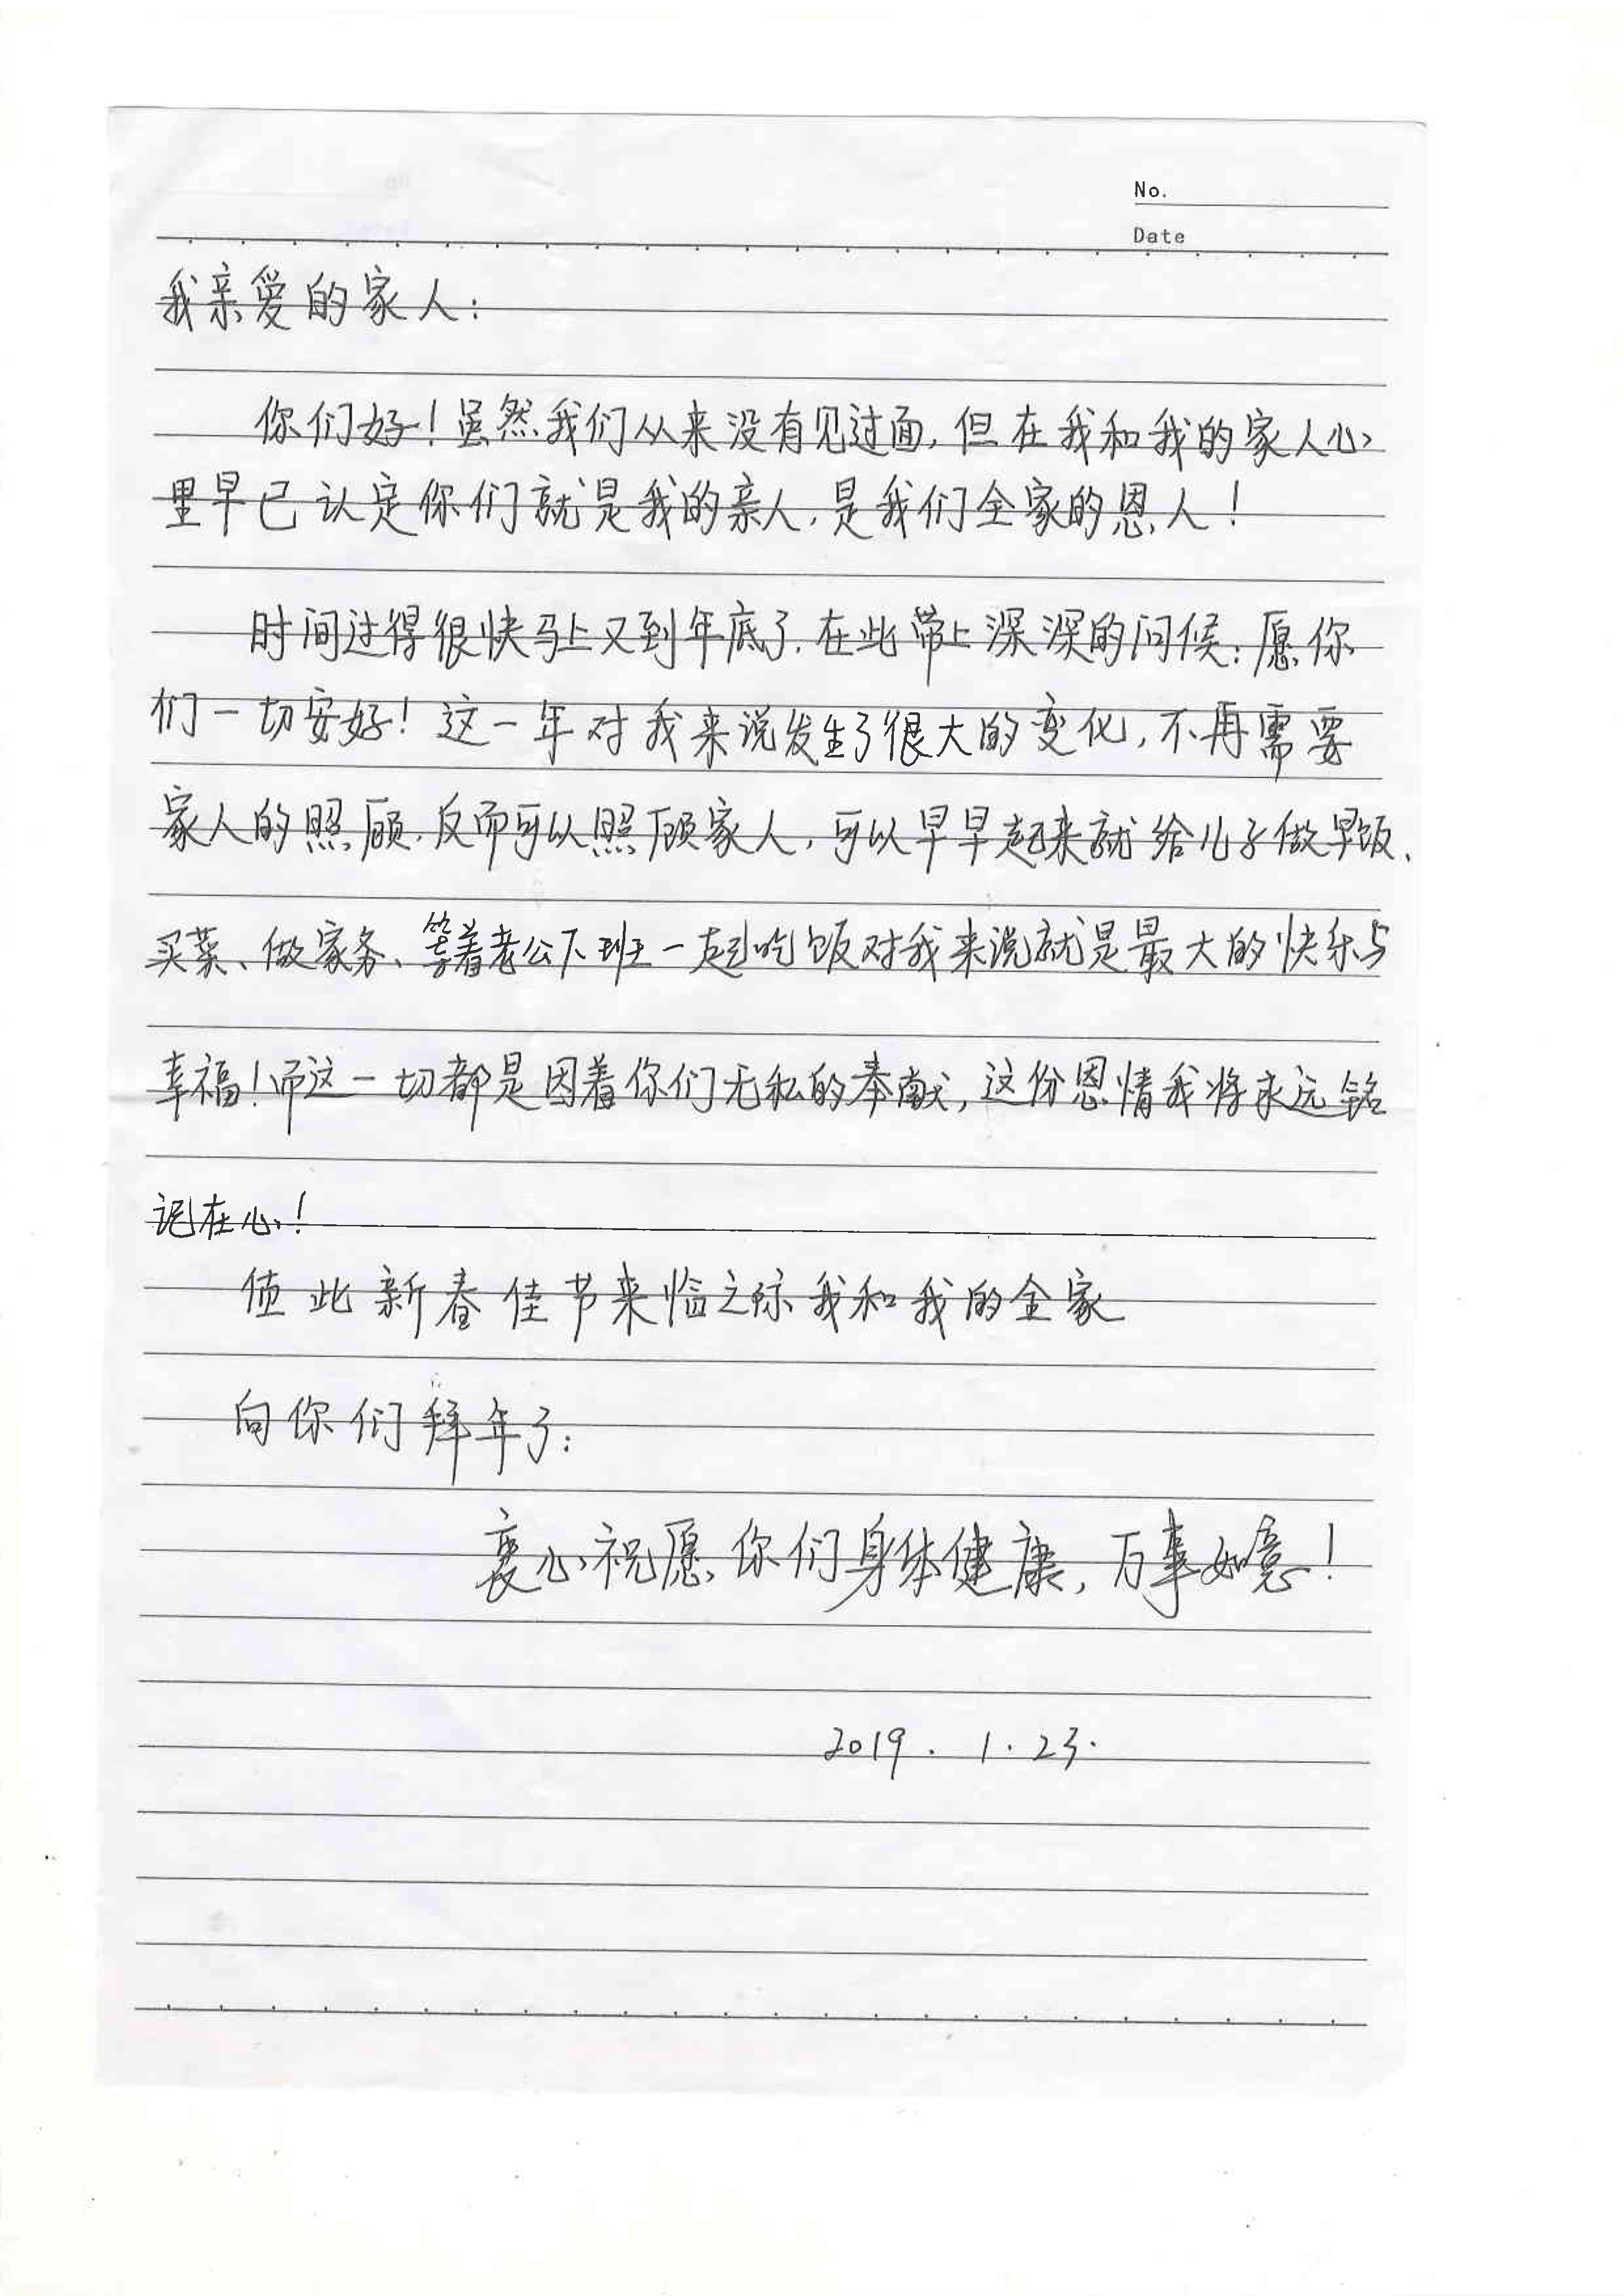 No.
Date
我亲爱的家人：
你们好！虽然我们从来没有见过面，但在我和我的家人心
里早已认定你们就是我的亲人，是我们全家的恩人！
时间过得很快马上又到年底了，在此带上深深的问候：愿你
们一切安好！这一年对我来说发生了很大的变化，不再需要
家人的照顾，反而可以照顾家人，可以早早起来就给儿子做早饭、
买菜、做家务、等着老公下班一起吃饭对我来说就是最大的快乐与
幸福！而这一切都是因着你们无私的奉献，这份恩情我将永远铭
记在心！
值此新春佳节来临之际我和我的全家
向你们拜年了：
衷心祝愿你们身体健康，万事如意！
2019.1.23.